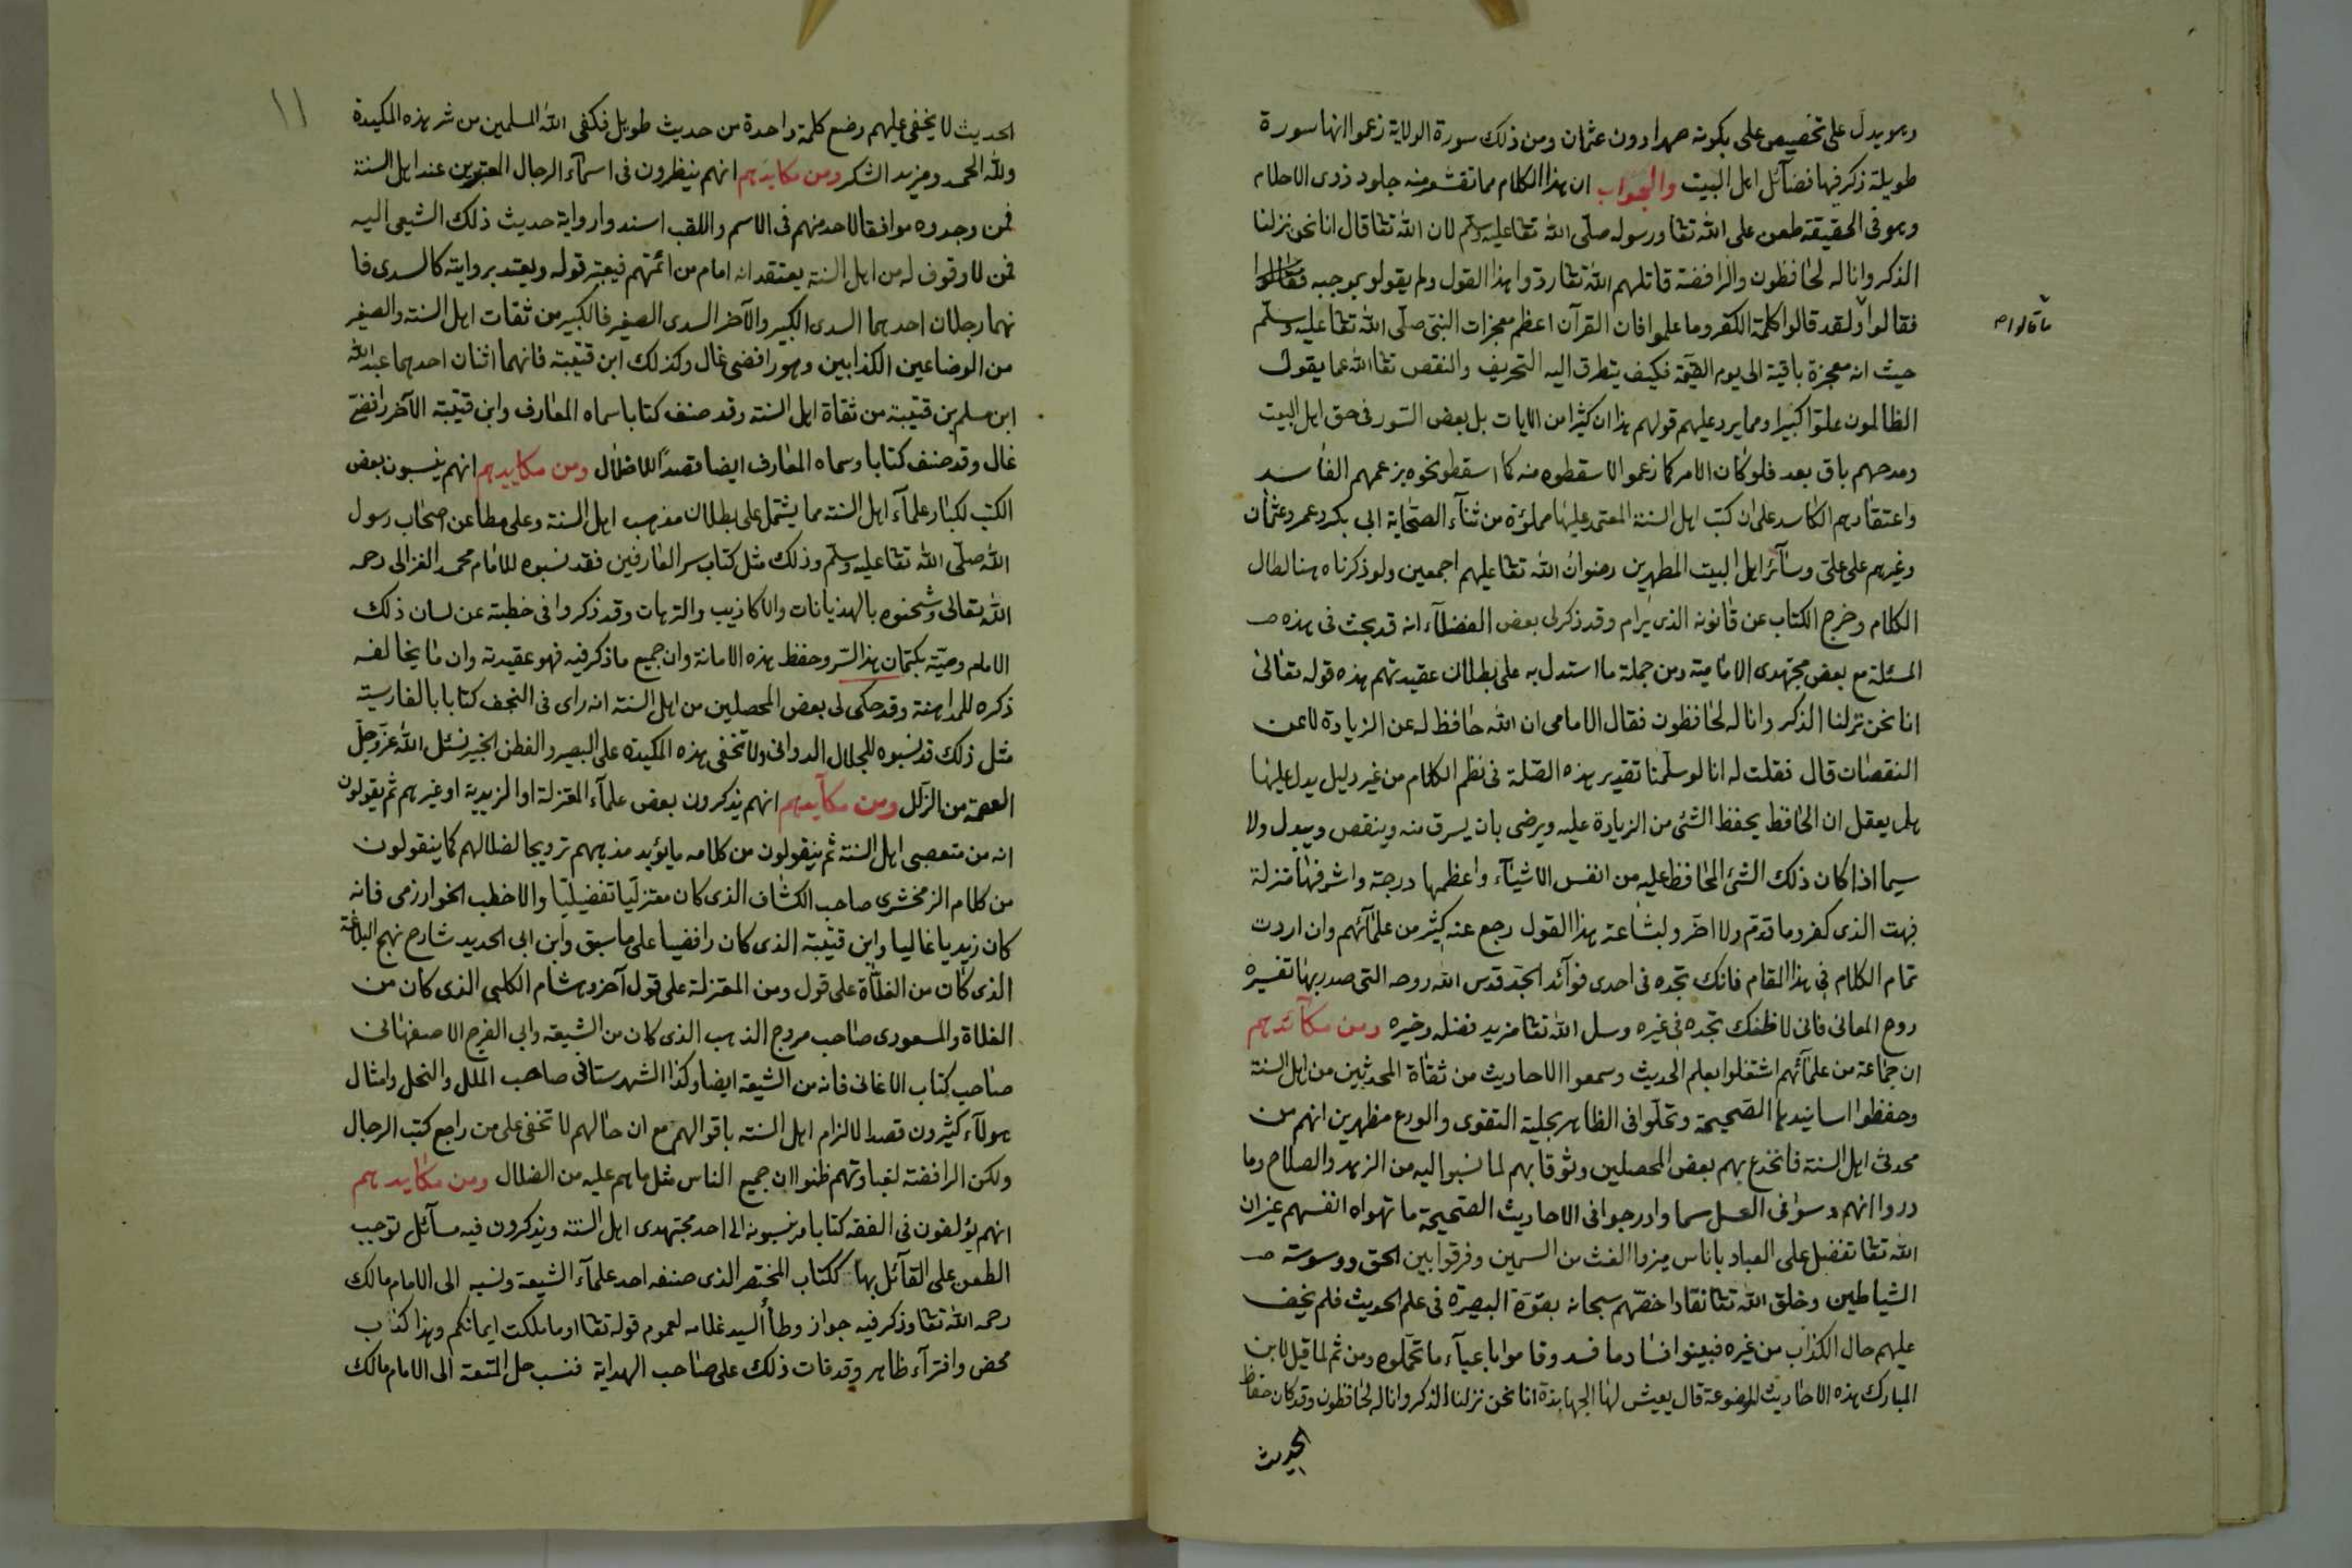 وهو يدل على تخصيص على بكونه صهرا دون عثمان ومن ذلك سورة الولاية زعموا انها سورة
طويلة ذكر فيها فضآئل اهل البيت والجواب ان هذا الكلام مما تقشعر منه جلود ذوى الاحلام
وهو فى الحقيقة طعن على الله تعا ورسوله صلّى الله تعا عليه وسلّم لان الله تعا قال انا نحن نزلنا
الذكر وانا له لحافظون والرافضة قاتلهم الله تعا ردوا هذا القول ولم يقولو بموجبه
فقالوا ولقد قالوا كلمة الكفر وما علموا فان القرآن اعظم معجزات النبى صلّى الله تعا عليه وسلّم
ما قالوا
حيث انه معجزة باقية الى يوم القيمة فكيف يتطرق اليه التحريف والنقص تعا الله عما يقول
الظالمون علوّا كبيرا ومما يرد عليهم قولهم هذا ان كثيرا من الايات بل بعض السّور فى حق اهل البيت
ومدحهم باق بعد فلو كان الامر كما زعموا لاسقطوه منه كما اسقطو نحوه بزعمهم الفاسد
واعتقادهم الكاسد على ان كتب اهل السنة المعتمد عليها مملؤة من ثنآء الصحابة ابى بكر وعمر وعثمان
وغيرهم على علىّ وسآئر اهل البيت المطهرين رضوان الله تعا عليهم اجمعين ولو ذكرناه هنا لطال
الكلام وخرج الكتاب عن قانونه الذى يرام وقد ذكر لى بعض الفضلآء انه قد بحث فى هذه
المسئلة مع بعض مجتهدى الامامية ومن جملة ما استدل به على بطلان عقيدتهم هذه قوله تعالى
انا نحن نزلنا الذكر وانا له لحافظون فقال الامامى ان الله حافظ له عن الزيادة لا عن
النقصان قال فقلت له انا لو سلّمنا تقدير هذه الصّلة فى نظم الكلام من غير دليل يدل عليها
هل يعقل ان الحافظ يحفظ الشئ من الزيادة عليه ويرضى بان يسرق منه وينقص ويبدل ولا
سيما اذا كان ذلك الشئ المحافظ عليه من انفس الاشيآء واعظمها درجة واشرفها منزلة
فبهت الذى كفر وما قدّم ولا اخّر ولبشاعة هذا القول رجع عنه كثير من علمآئهم وان اردت
تمام الكلام فى هذا المقام فانك تجده فى احدى فوآئد الجدّ قدس الله روحه التى صدر بها تفسيره
روح المعانى فانى لا اظنك تجده فى غيره وسل الله تعا مزيد فضله وخيره ومن مكآئدهم
ان جماعة من علمآئهم اشتغلوا بعلم الحديث وسمعوا الاحاديث من ثقاة المحدثين من اهل السنة
وحفظوا اسانيدها الصحيحة وتحلّوا فى الظاهر بحلية التقوى والورع مظهرين انهم من
محدثى اهل السنة فانخدع بهم بعض المحصلين وثوقا بهم لما نسبوا اليه من الزهد والصلاح وما
دروا انهم دسوا فى العسل سما وادرجوا فى الاحاديث الصحيحة ما تهواه انفسهم غير ان
الله تعا تفضل على العباد باناس ميزوا الغث من السمين وفرقوا بين الحق ووسوسة
الشياطين وخلق الله تعا نقادا خصّهم سبحانه بقوّة البصيرة فى علم الحديث فلم يخف
عليهم حال الكذاب من غيره فبينوا فساد ما فسد وقاموا باعبآء ما تحمّلوه ومن ثم لما قيل لابن
المبارك هذه الاحاديث الموضوعة قال يعيش لها الجهابذة انا نحن نزلنا الذكر وانا له لحافظون وقد كان حفاظ
الحديث
١١
الحديث لا يخفى عليهم وضع كلمة واحدة من حديث طويل فكفى الله المسلمين من شر هذه المكيدة
ولله الحمد ومزيد الشكر ومن مكايدهم انهم ينظرون فى اسمآء الرجال المعتبرين عند اهل السنة
فمن وجدوه موافقا لاحد منهم فى الاسم واللقب اسندوا رواية حديث ذلك الشيعى اليه
فمن لا وقوف له من اهل السنة يعتقد انه امام من ائمتهم فيعتبر قوله ويعتد بروايته كالسدى فا
نهما رجلان احدهما السدى الكبير والآخر السدى الصغير فالكبير من ثقات اهل السنة والصغير
من الوضاعين الكذابين وهو رافضى غال وكذلك ابن قتيبة فانهما اثنان احدهما عبد الله
ابن مسلم بن قتيبة من ثقاة اهل السنة وقد صنف كتابا سماه المعارف وابن قتيبة الآخر رافضى
غال وقد صنف كتابا وسماه المعارف ايضا قصدًا للاضلال ومن مكاييدهم انهم ينسبون بعض
الكتب لكبار علمآء اهل السنة مما يشتمل على بطلان مذهب اهل السنة وعلى مطاعن اصحاب رسول
الله صلّى الله تعا عليه وسلّم وذلك مثل كتاب سر العارفين فقد نسبوه للامام محمد الغزالى رحمه
الله تعالى وشحنوه بالهذيانات والاكاذيب والترهات وقد ذكروا فى خطبته عن لسان ذلك
الامام وصيّة بكتمان هذا السّر وحفظ هذه الامانة وان جميع ما ذكر فيه فهو عقيدته وان ما يخالفه
ذكره للمداهنة وقد حكى لى بعض المحصلين من اهل السنة انه راى فى النجف كتابا بالفارسية
مثل ذلك قد نسبوه للجلال الدوانى ولا تخفى هذه المكيدة على البصير والفطن الخبير نسئل الله عزّ وجلّ
العصمة من الزلل ومن مكآيدهم انهم يذكرون بعض علمآء المعتزلة او الزيدية او غيرهم ثم يقولون
انه من متعصبى اهل السنة ثم ينقولون من كلامه ما يؤيد مذهبهم ترويجا لضلالهم كما ينقولون
من كلام الزمخشرى صاحب الكشاف الذى كان معتزليّا تفضيليّا والاخطب الخوارزمى فانه
كان زيديا غاليا وابن قتيبة الذى كان رافضيا على ما سبق وابن ابى الحديد شارح نهج البلاغة
الذى كان من الغلاة على قول ومن المعتزلة على قول آخر وهشام الكلبى الذى كان من
الغلاة والمسعودى صاحب مروج الذهب الذى كان من الشيعة وابى الفرج الاصفهانى
صاحب كتاب الاغانى فانه من الشيعة ايضا وكذا الشهرستانى صاحب الملل والنحل وامثال
هولآء كثيرون قصدا لالزام اهل السنة باقوالهم مع ان حالهم لا تخفى على من راجع كتب الرجال
ولكن الرافضة لغباوتهم ظنوا ان جميع الناس مثل ما هم عليه من الضلال ومن مكايدهم
انهم يؤلفون فى الفقه كتابا وينسبونه الى احد مجتهدى اهل السنة ويذكرون فيه مسآئل توجب
الطعن على القآئل بها ككتاب المختصر الذى صنفه احد علمآء الشيعة ونسبه الى الامام مالك
رحمه الله تعا وذكر فيه جواز وطأ السيد غلامه لعموم قوله تعا او ما ملكت ايمانكم وهذا كذب
محض وافترآء ظاهر وقد فات ذلك على صاحب الهداية فنسب حل المتعة الى الامام مالك